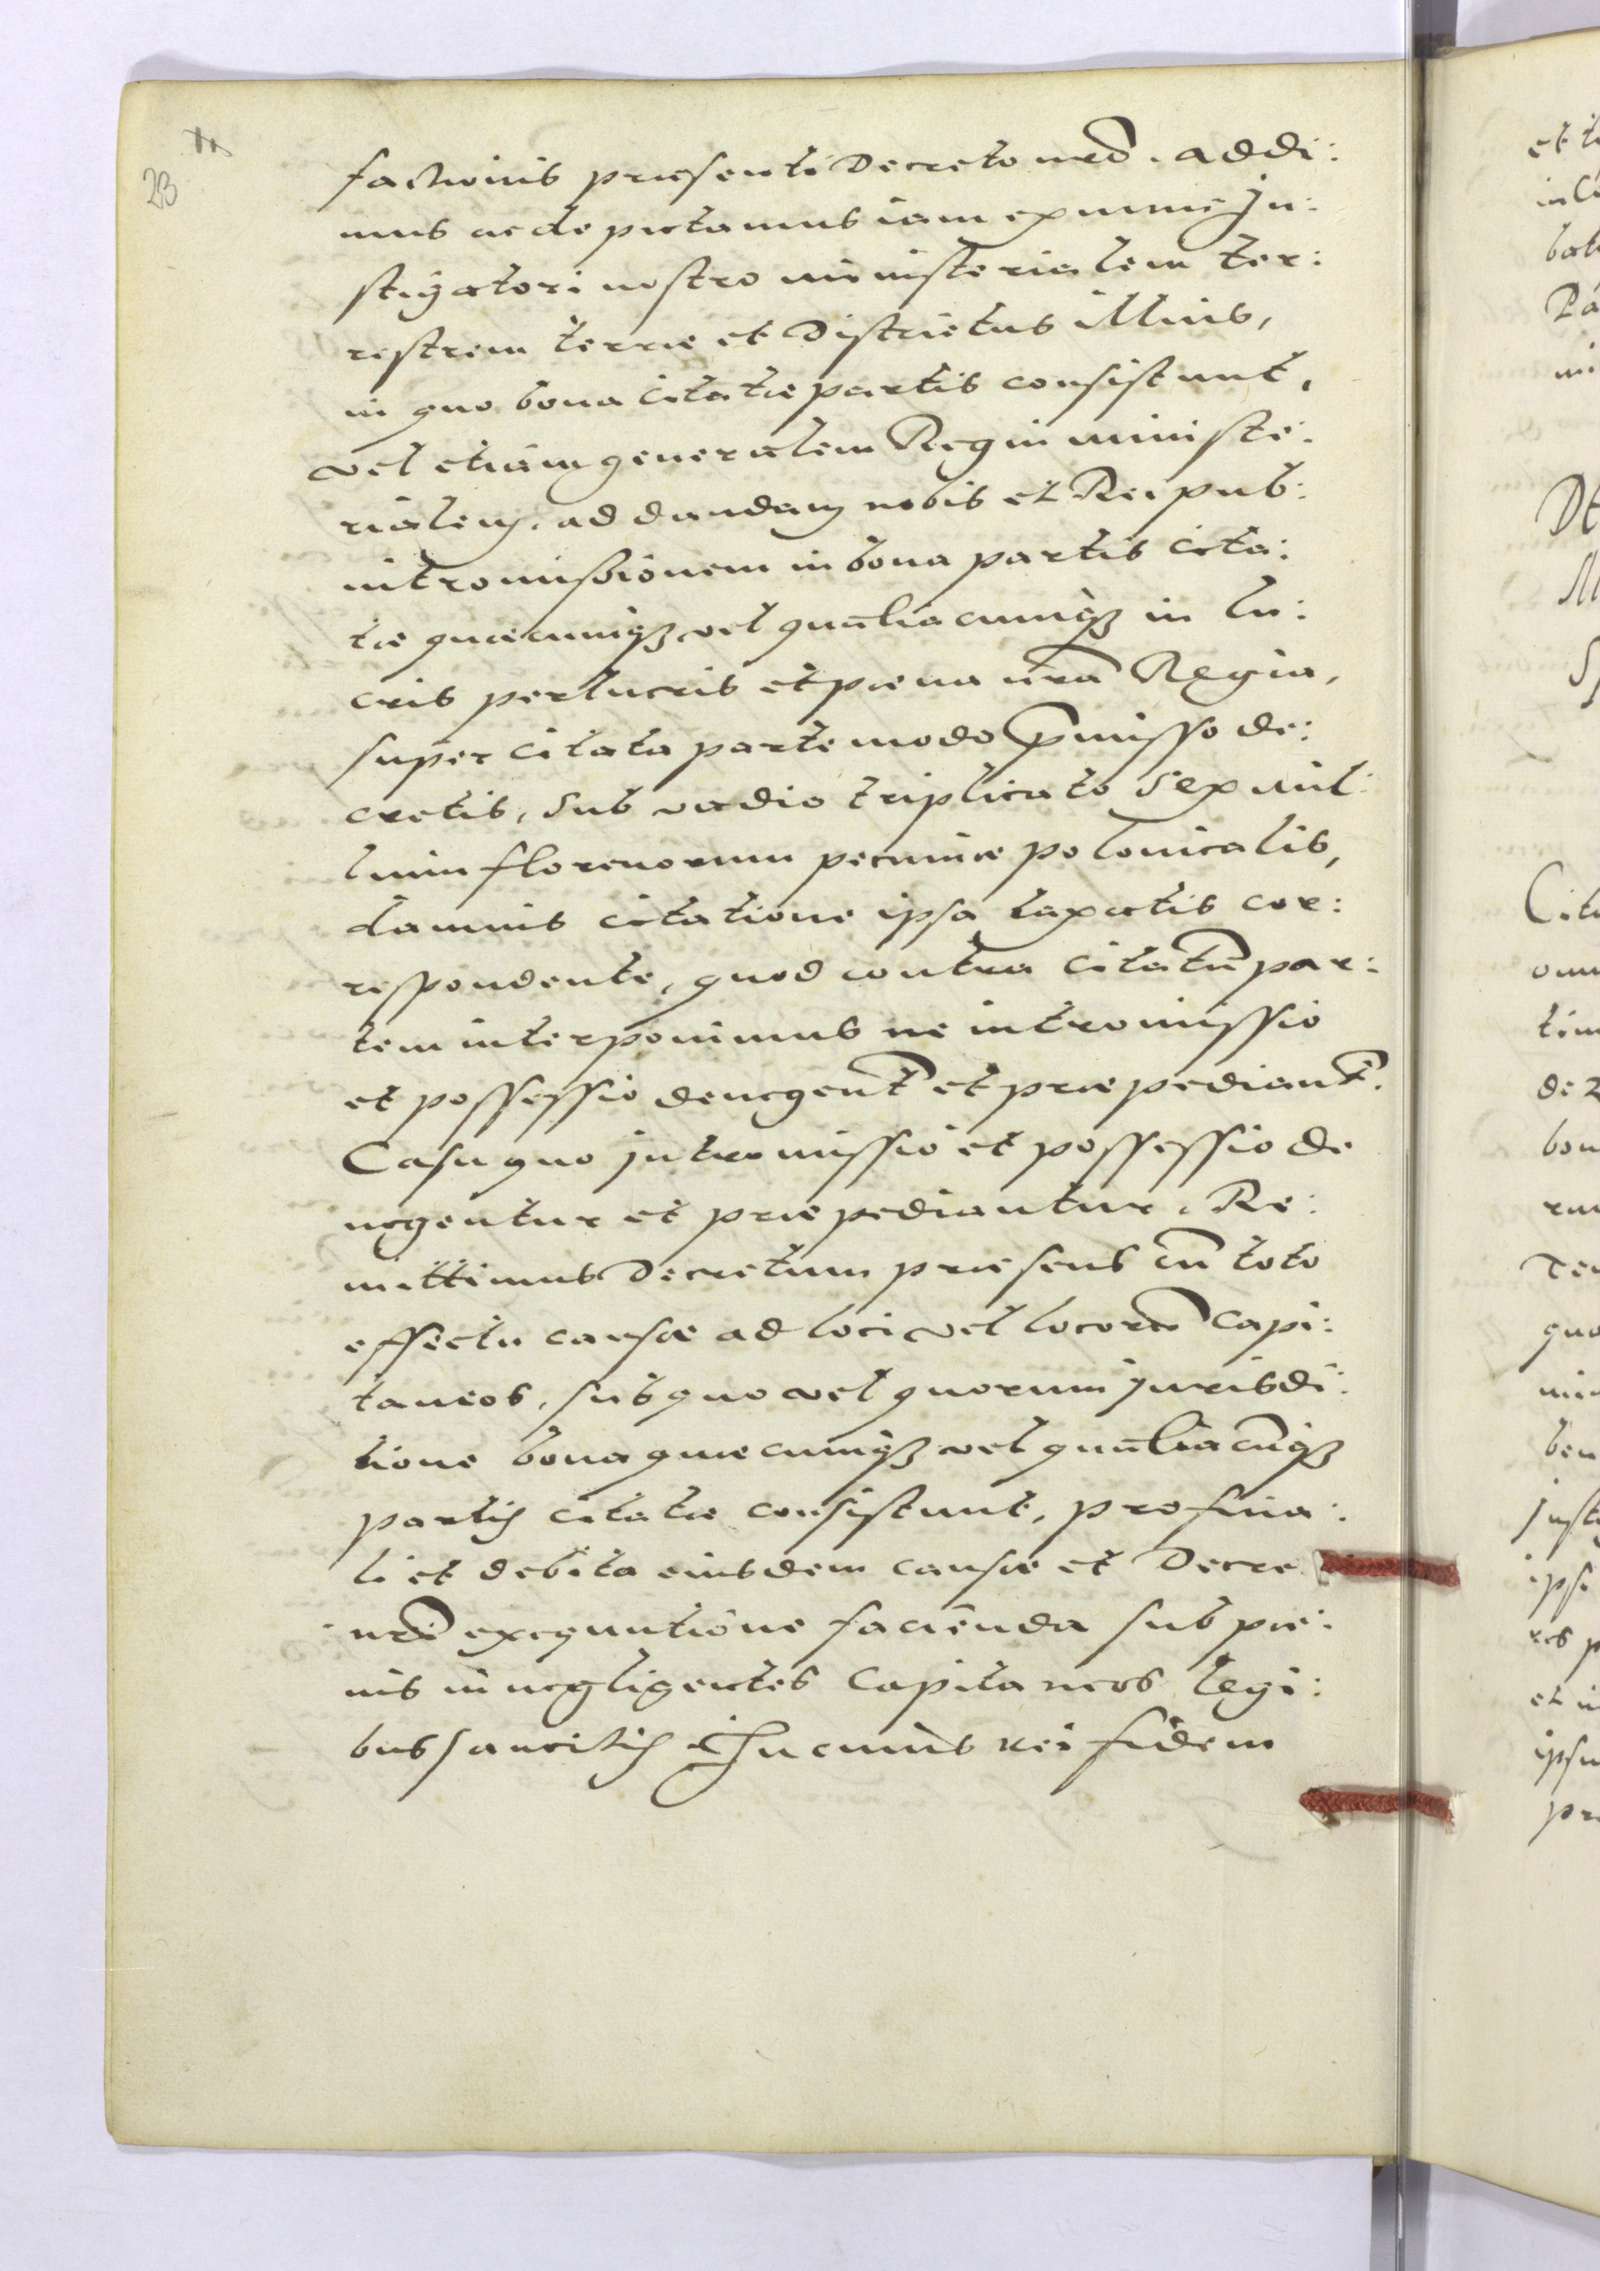 23
factionis præsenti Decreto nrõ. addi:
mus ac deputamus iam ex nunc In:
stigatori nostro ministerialem ter:
restrem terræ et Districtus illius,
in quo bona citatæ partis consistunt,
vel etiam generalem Regni ministe:
rialem. ad dandam nobis et Reipub:
intromissionem in bona partis cita:
tæ quæcumqȝ vel qualiacumqȝ in lu:
cris perlucris et pœna nrã Regia,
super citata parte modo p̃misso de:
cretis, sub vadio triplicato sex mil:
lium florenorum pecuniæ polonicalis,
damnis citatione ipsa taxatis cor:
respondente, quod contra citatã par:
tem interponimus ne intromissio
et possessio denegent̃ et præpediant̃.
Casu quo intromissio et possessio de
negentur et præpediantur. Re:
mittimus Decretum præsens cũ toto
effectu causæ ad loci vel locorũ Capi:
taneos, sub quo vel quorum jurisdi:
tione bona quæcumqȝ vel qualiacũqȝ
partis citatæ consistunt, pro fina:
li et debita eiusdem causæ et Decre
nrĩ exequutione facienda sub pœ:
nis in negligentes Capitaneos legi:
bus sancitis In cuius rei fidem